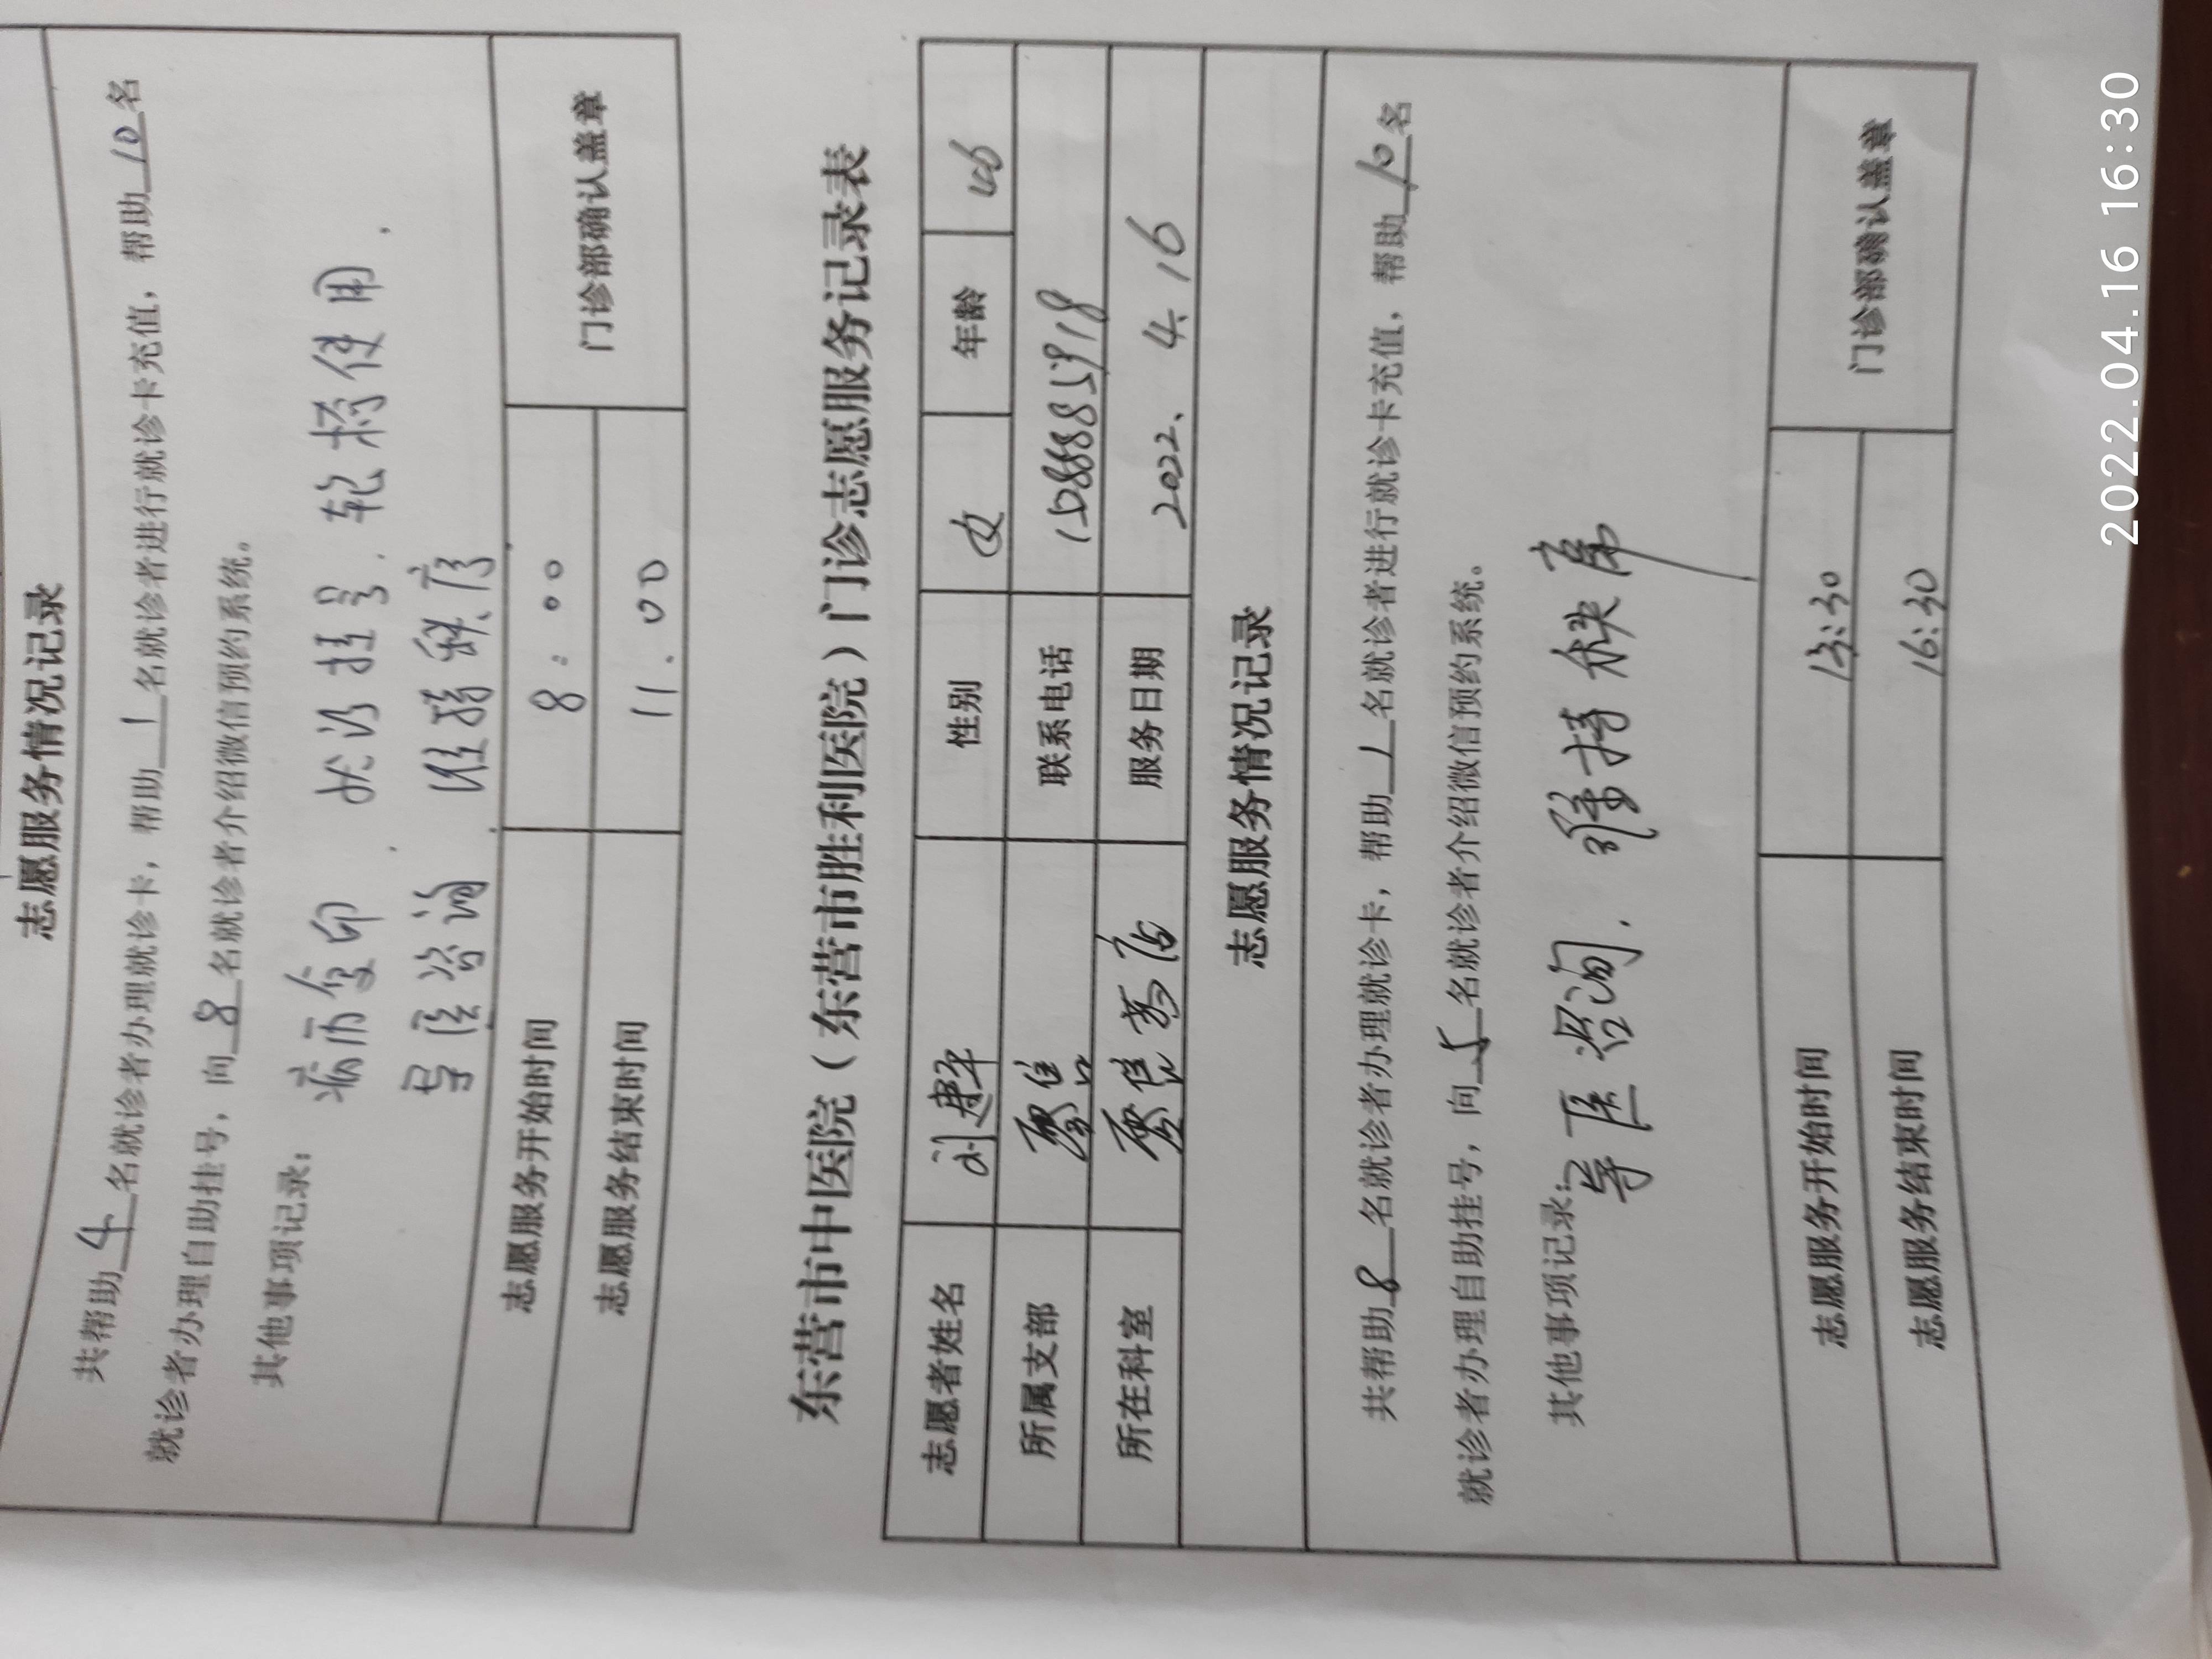 志愿服务情况记录
共帮助4名就诊者办理就诊卡，帮助1名就诊者进行就诊卡充值，帮助10名
就诊者办理自助挂号，向8名就诊者介绍微信预约系统。
其他事项记录：
病历复印 轮椅使用
导医咨询 维持秩序
志愿服务开始时间 8:00 门诊部确认盖章
志愿服务结束时间 11.00
东营市中医院（东营市胜利医院）门诊志愿服务记录表
志愿者姓名 刘 性别 女 年龄 46
所属支部 联系电话 1588885918
所在科室 服务日期 2022、4.16
志愿服务情况记录
共帮助8名就诊者办理就诊卡，帮助1名就诊者进行就诊卡充值，帮助10名
就诊者办理自助挂号，向5名就诊者介绍微信预约系统。
其他事项记录：
导医咨询．维持秩序
志愿服务开始时间 13:30 门诊部确认盖章
志愿服务结束时间 16:30
2022.04.16 16:30